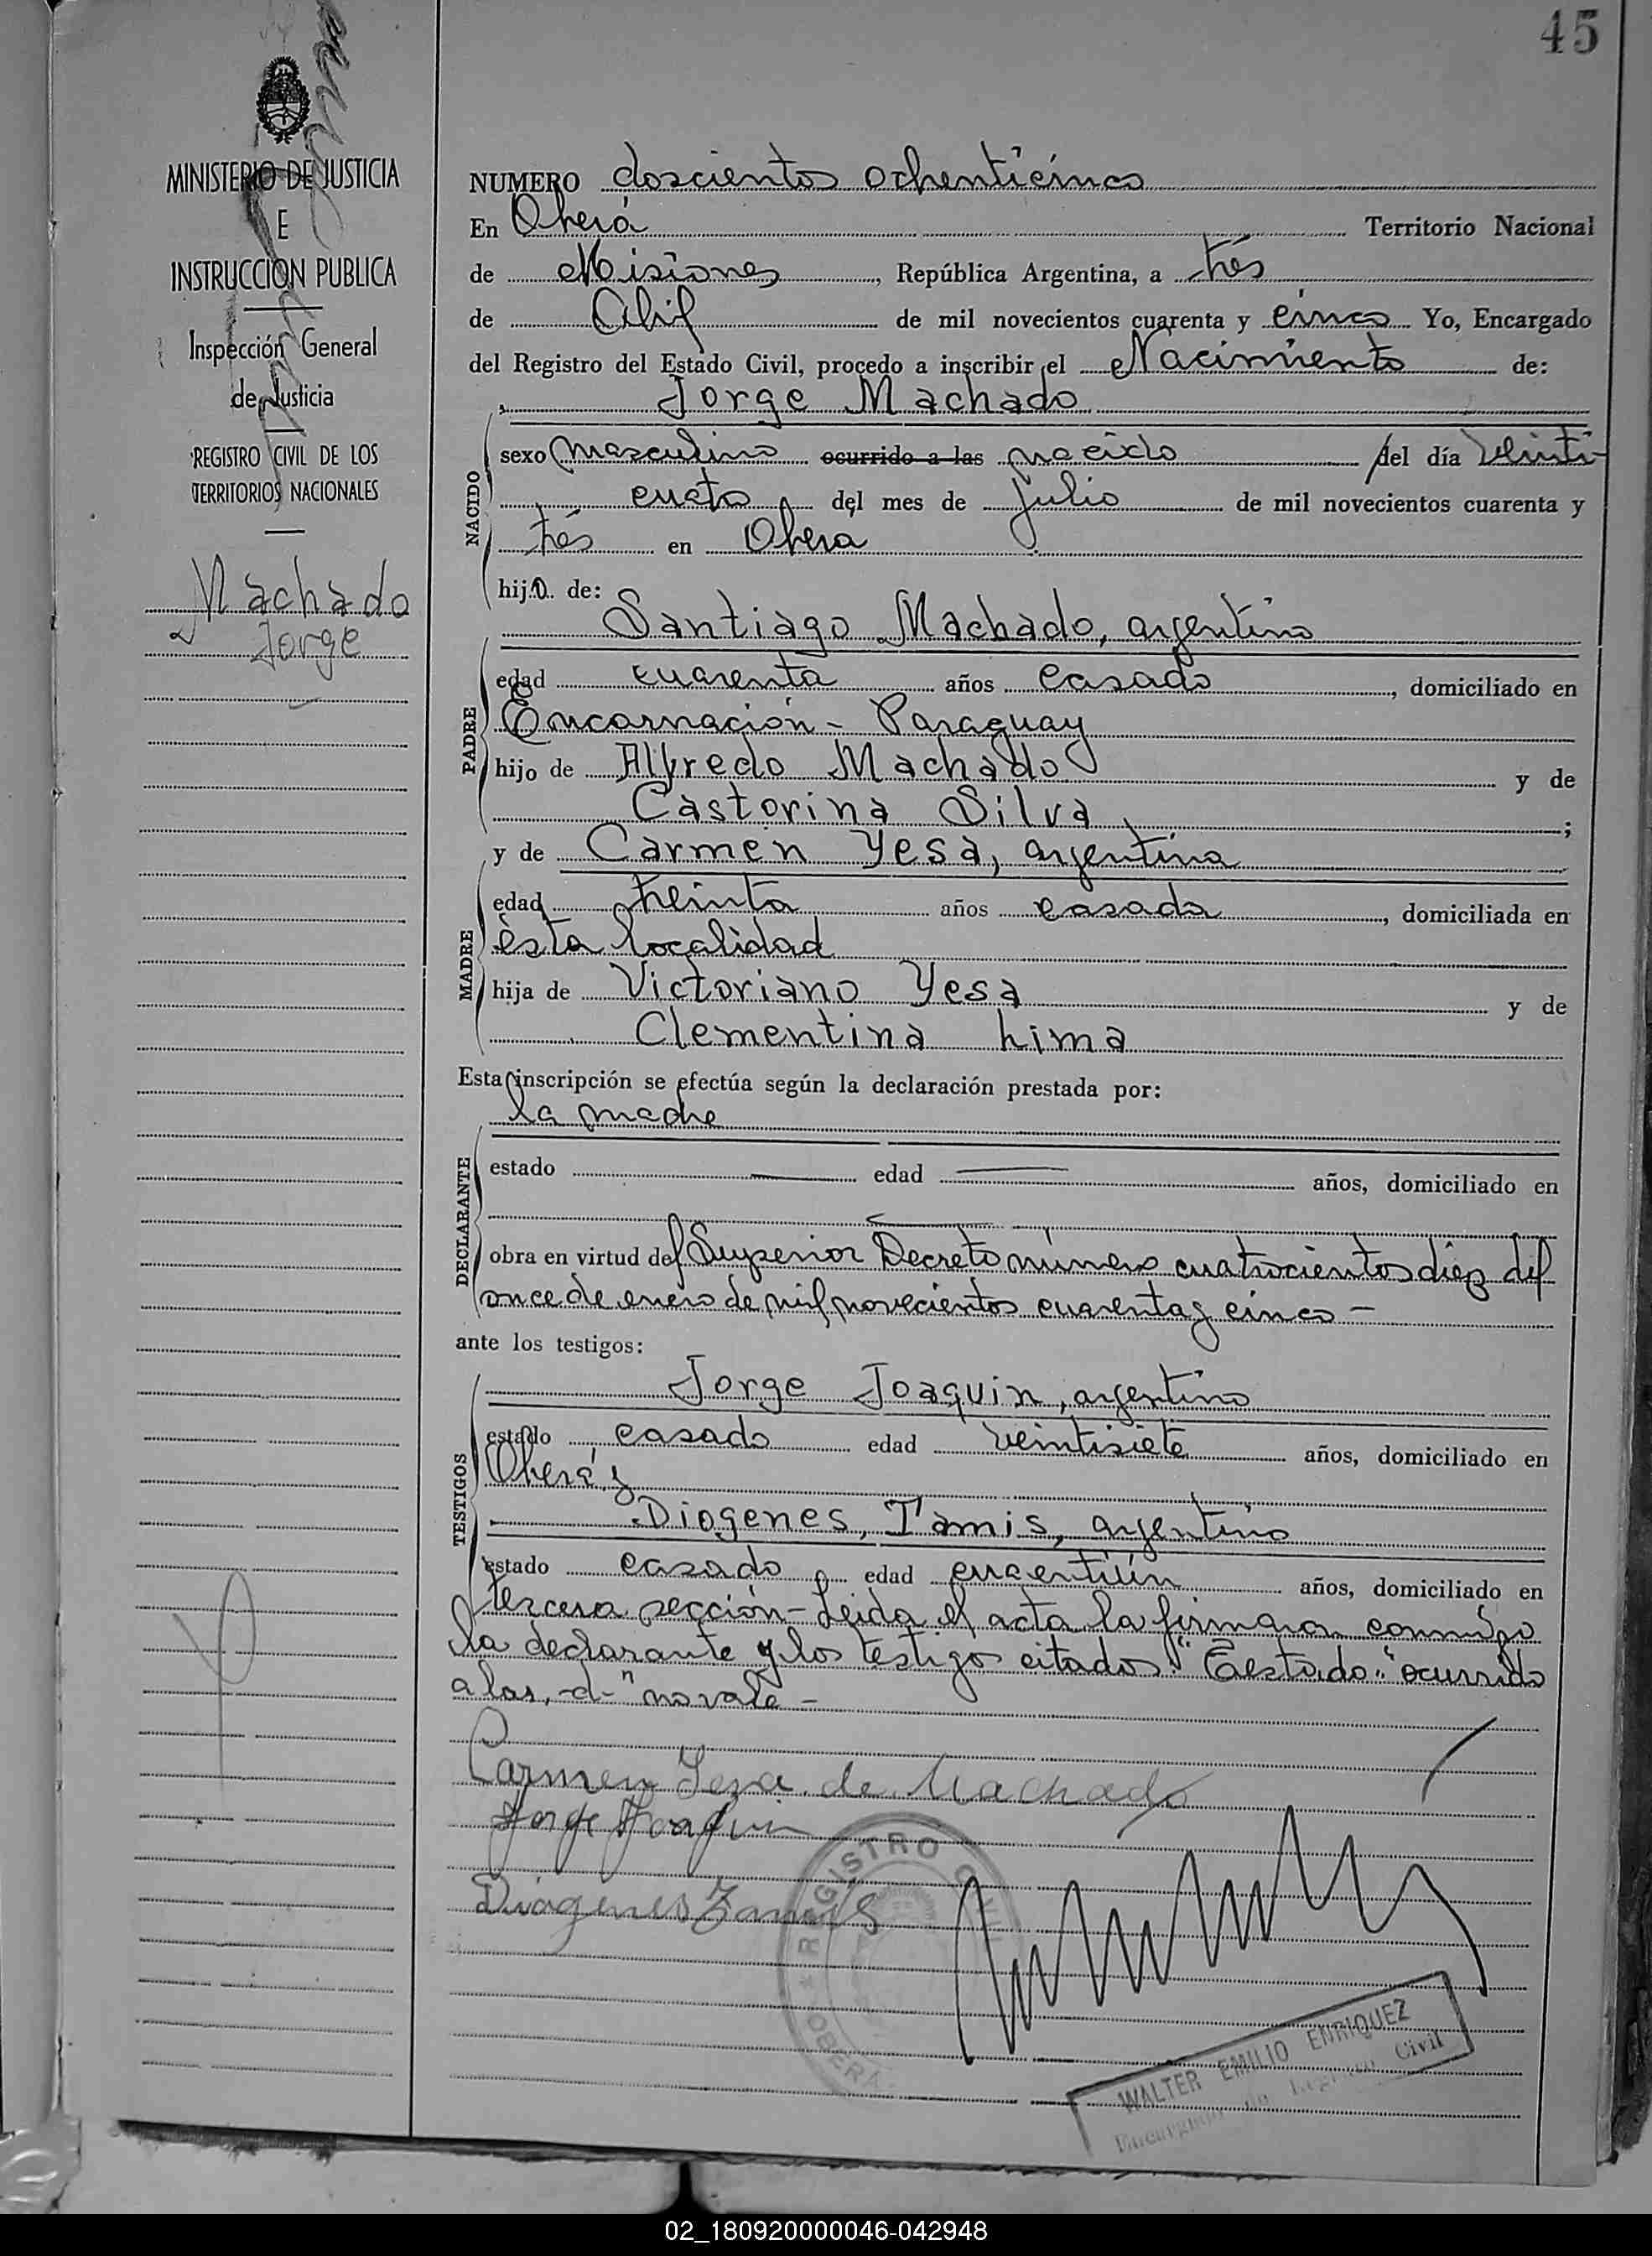 45
MINISTERIO DE JUSTICIA
E
INSTRUCCION PUBLICA
Inspección General
de Justicia
REGISTRO CIVIL DE LOS
TERRITORIOS NACIONALES
Machado
Jorge
NUMERO doscientos ochenticinco
En Oberá Territorio Nacional
de Misiones, República Argentina, a tres
de Abril de mil novecientos cuarenta y cinco Yo, Encargado
del Registro del Estado Civil, procedo a inscribir el Nacimiento de:
Jorge Machado
NACIDO
sexo masculino ocurrido a las nacido del día veinti-
cuatro del mes de julio de mil novecientos cuarenta y
tres en Oberá
hijo de:
Santiago Machado, argentino
PADRE
edad cuarenta años casado, domiciliado en
Encarnación - Paraguay
hijo de Alfredo Machado y de
Castorina Silva;
y de Carmen Yesa, argentina
MADRE
edad treinta años casada, domiciliada en
ésta localidad
hija de Victoriano Yesa y de
Clementina Lima
Esta inscripción se efectúa según la declaración prestada por:
la madre
DECLARANTE
estado — edad — años, domiciliado en
—
obra en virtud del Superior Decreto número cuatrocientos diez del
once de enero de mil novecientos cuarenta y cinco -
ante los testigos:
TESTIGOS
Jorge Joaquin, argentino
estado casado edad veintisiete años, domiciliado en
Oberá, y
Diogenes, Tamis, argentino
estado casado edad cuarentiún años, domiciliado en
tercera sección - Leida el acta la firman conmigo
la declarante y los testigos citados. "Testado:" ocurrido
a las, -d- "no vale -
Carmen Yesa de Machado
Jorge Joaquin
Diogenes Tamis
REGISTRO CIVIL
OBERA
WALTER EMILIO ENRIQUEZ
Encargado de Registro Civil
02_180920000046-042948